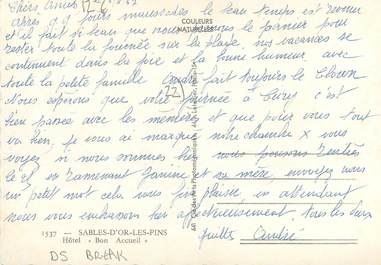 Chers Amis
après q q jours maussades le beau temps est revenu
et il fait si beau que nous le panier pour
rester toute la journée sur la plage, nos vacances se
continuent dans la joie et la bonne humeur, avec
toute la petite famille André fait toujours le Clown
Nous espérons que votre journée à c'est
bien passée avec les mémères et que pour vous tout
va bien, je vous ai marqué notre chambre x vous
voyez si nous sommes bien nous pensons
le en ramenant Janine et sa mère envoyez nous
un petit mot cela nous fera plaisir, en attendant
nous vous embrassons bien affectueusement, tous les
quatre André
COULEURS
NATURELLES
1537 - SABLES-D'OR-LES-PINS
Hôtel « Bon Accueil »
DS BREAK